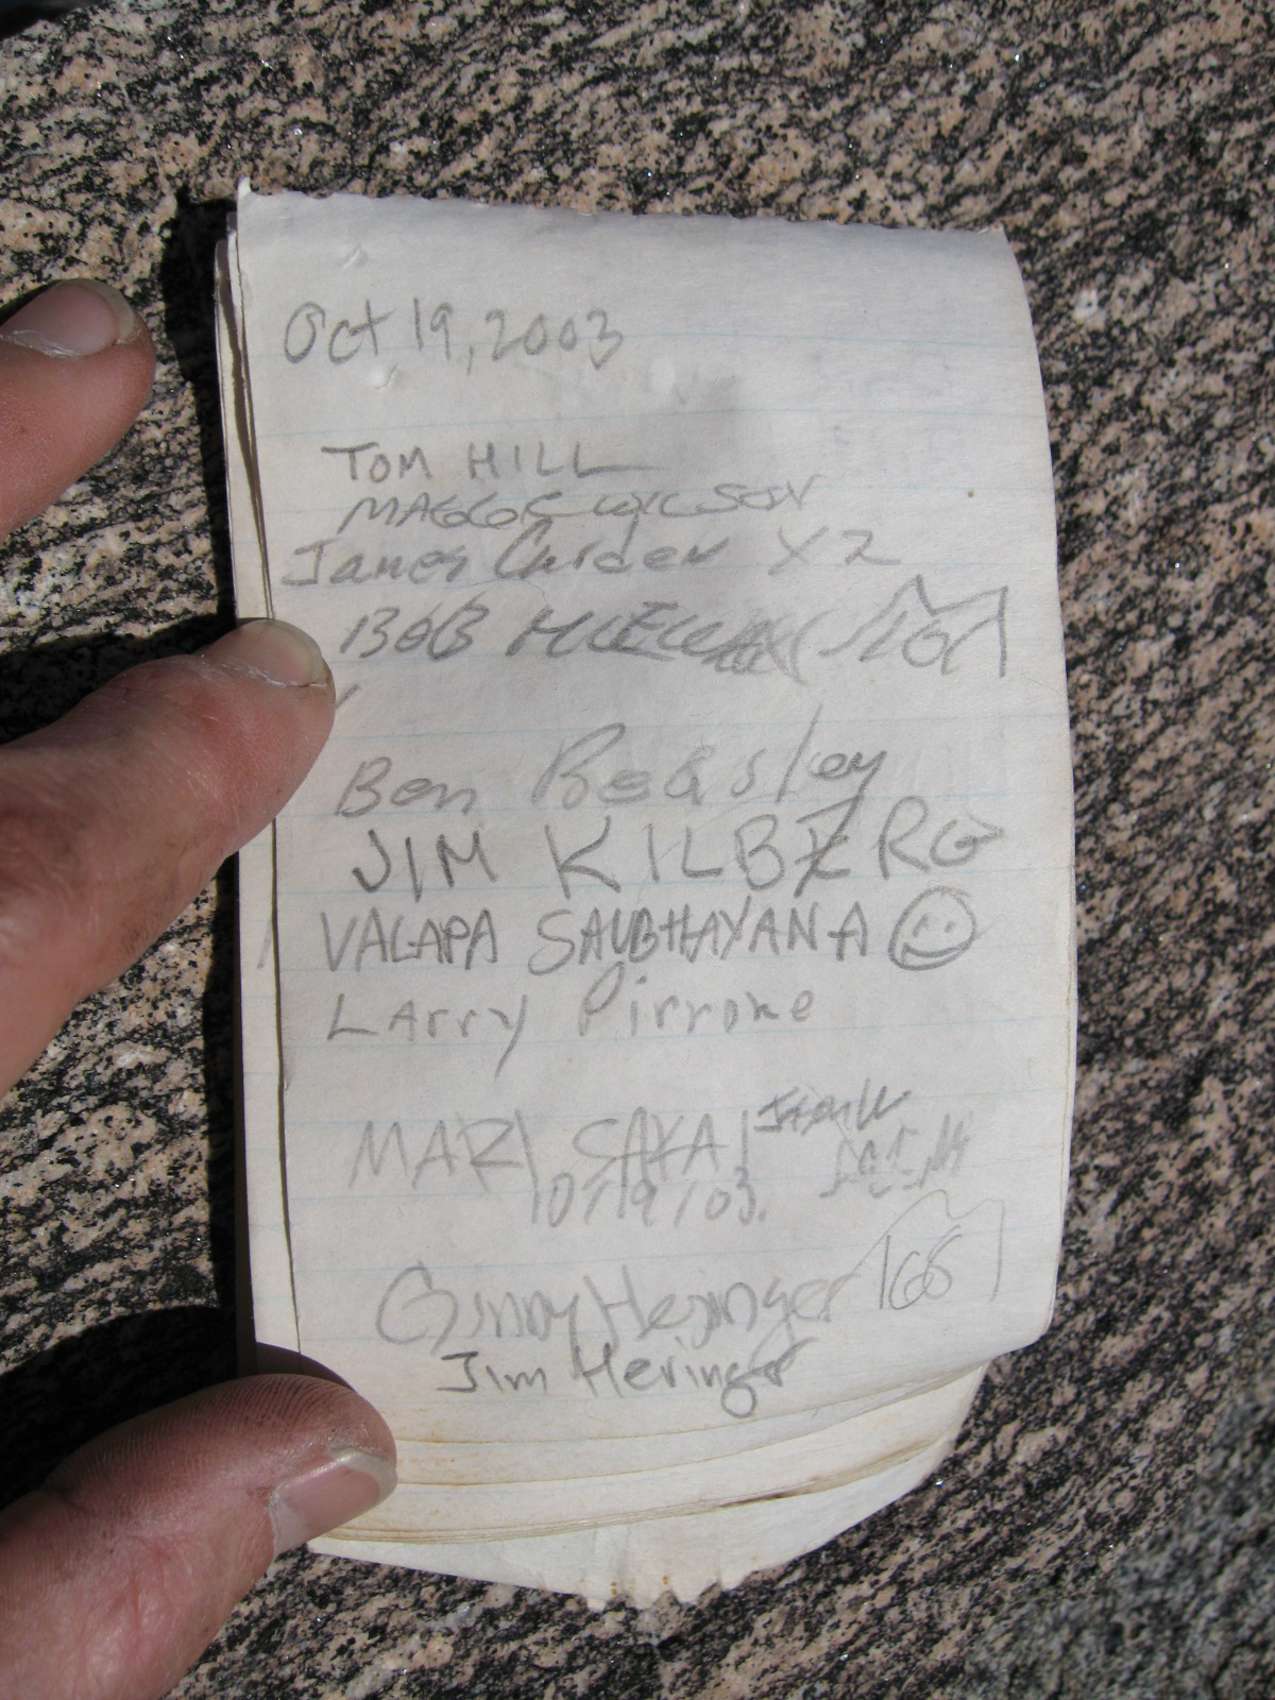 Oct 19, 2003
TOM HILL
MAGGIE WILSON
James Carden X2
BOB
Ben Beasley
JIM KILBERG
VALAPA SAUBHAYANA
Larry Pirrone
MARI SAKAI
10/19/03.
Ginny Heringer 166
Jim Heringer